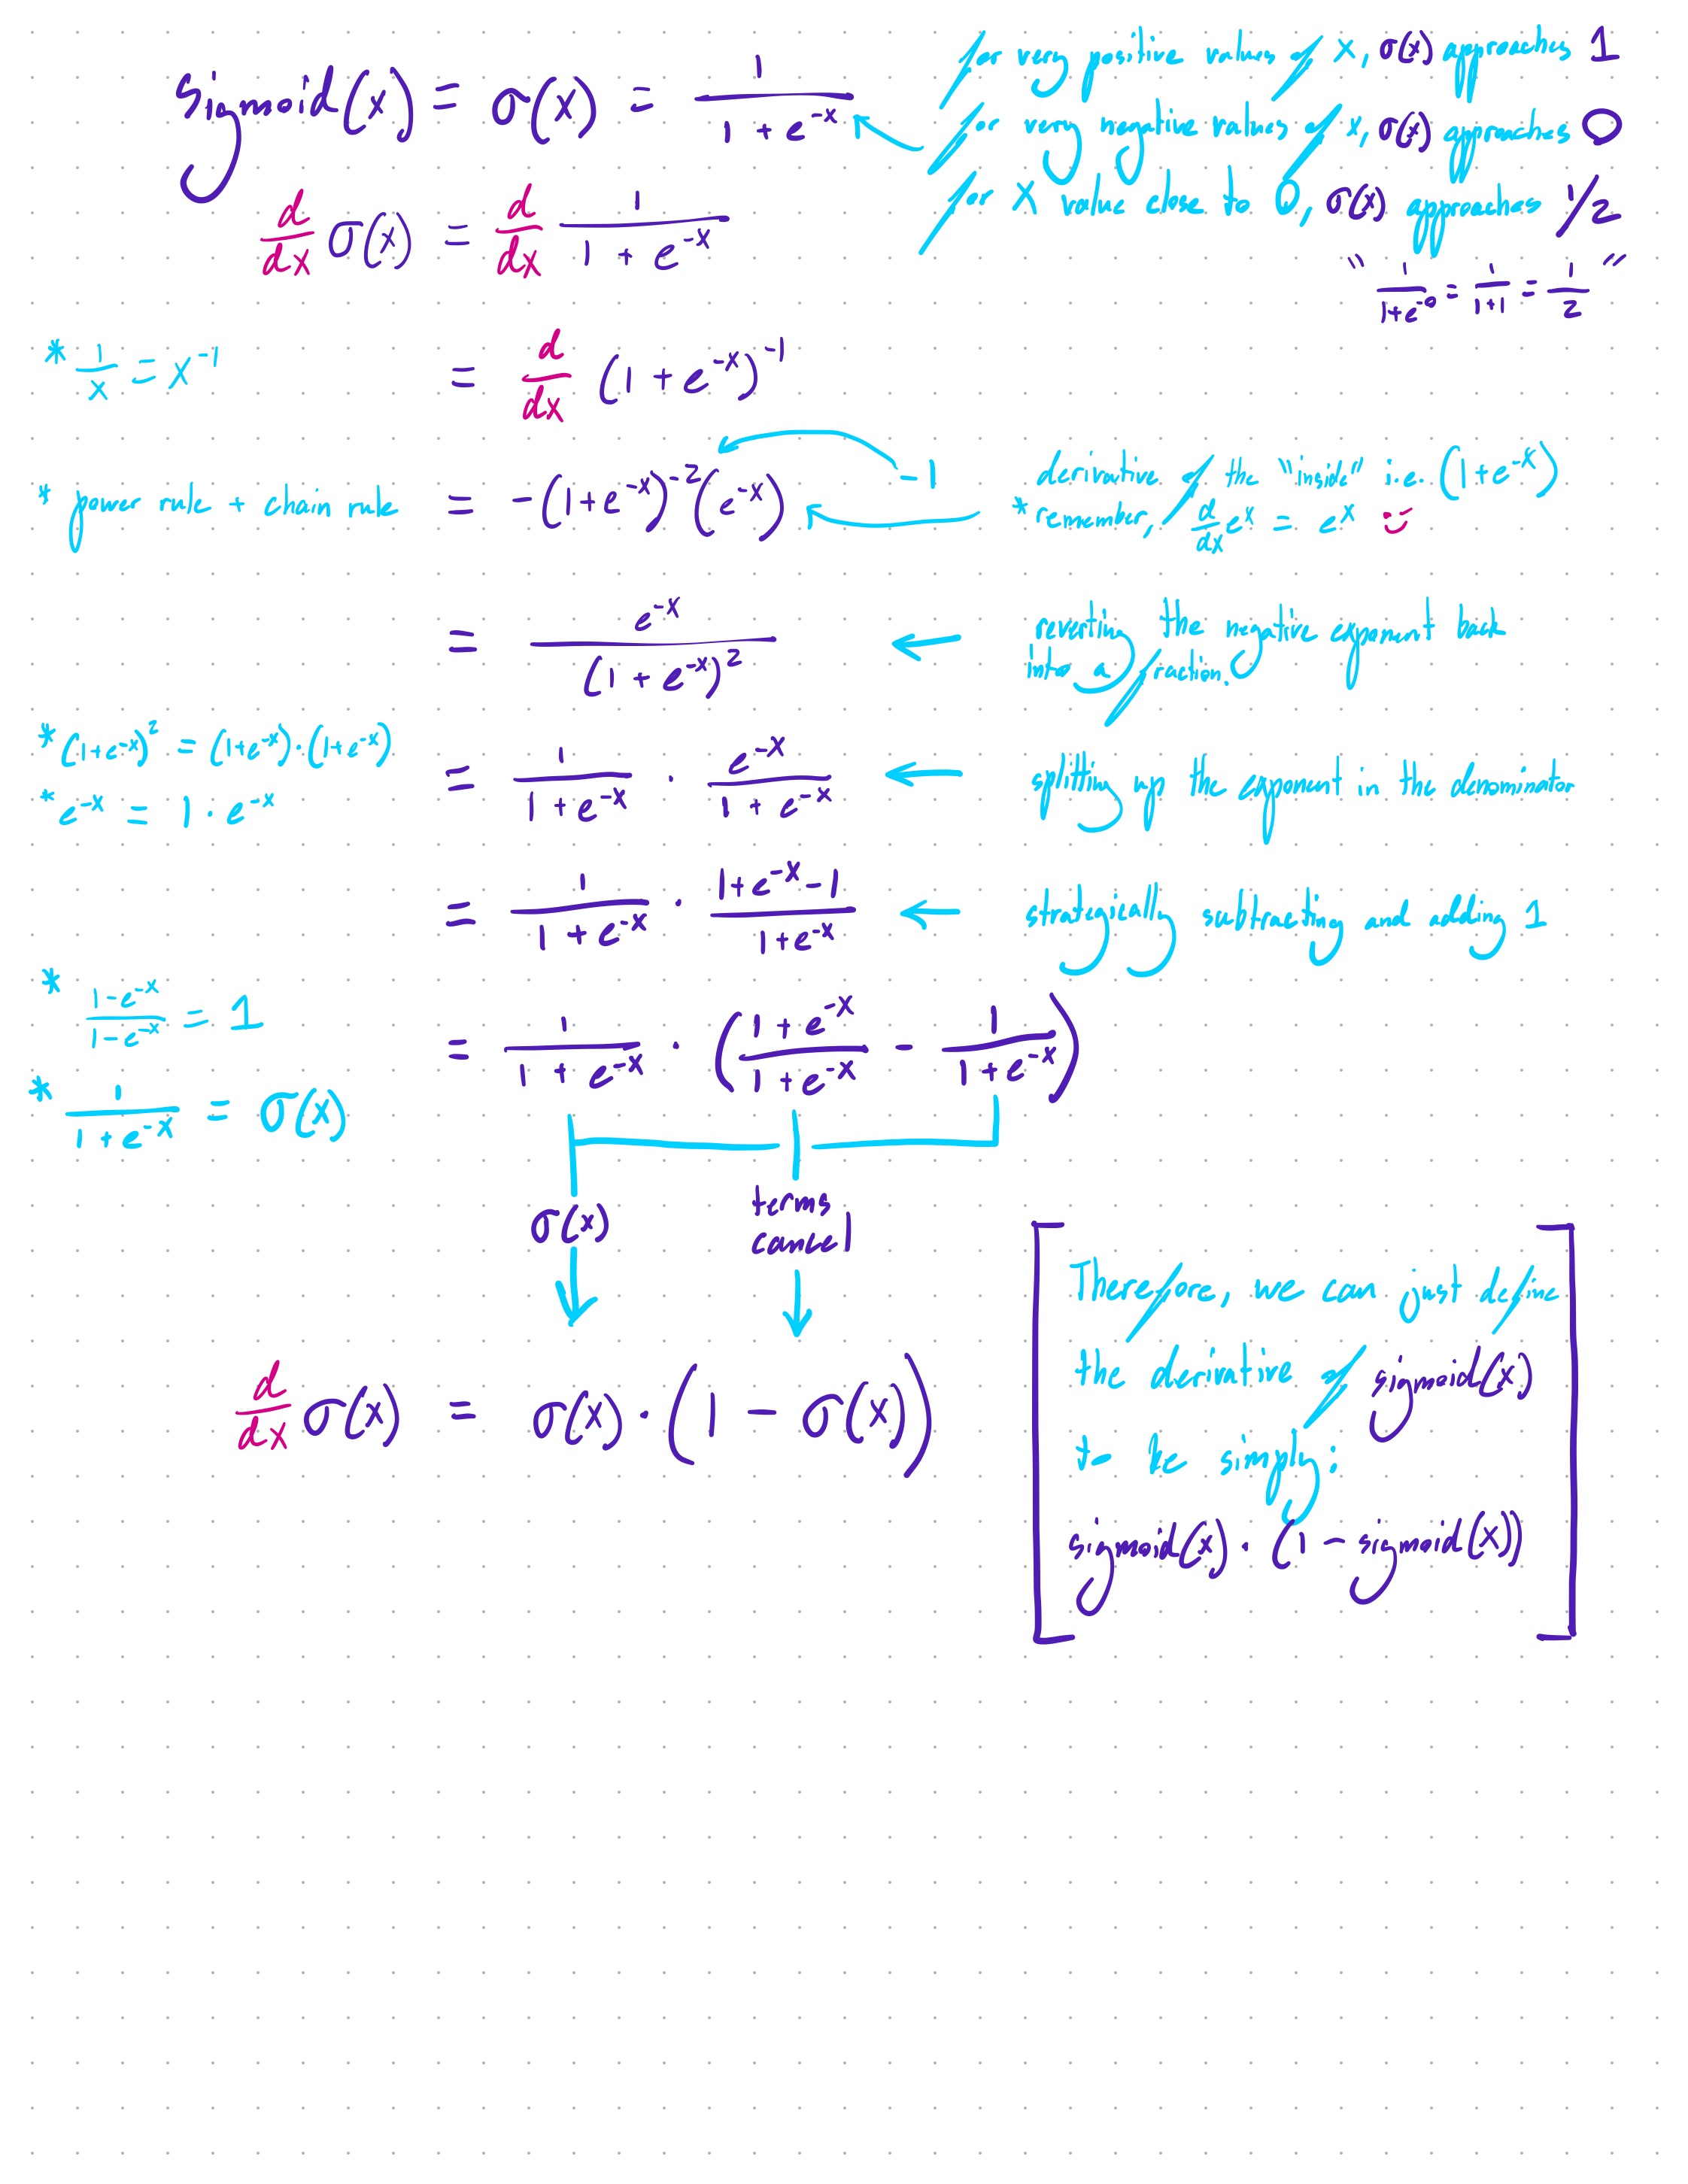 sigmoid(x) = σ(x) = 1 / (1 + e^-x)
for very positive values of x, σ(x) approaches 1
for very negative values of x, σ(x) approaches 0
for x value close to 0, σ(x) approaches 1/2
" 1/(1+e^-0) = 1/(1+1) = 1/2 "
d/dx σ(x) = d/dx 1 / (1 + e^-x)
* 1/x = x^-1
= d/dx (1 + e^-x)^-1
* power rule + chain rule
= -(1+e^-x)^-2 (e^-x)
-1
derivative of the "inside" i.e. (1+e^-x)
* remember, d/dx e^x = e^x :)
= e^-x / (1 + e^-x)^2
reverting the negative exponent back
into a fraction.
* (1+e^-x)^2 = (1+e^-x)·(1+e^-x)
* e^-x = 1 · e^-x
= 1/(1 + e^-x) · e^-x/(1 + e^-x)
splitting up the exponent in the denominator
= 1/(1 + e^-x) · (1+e^-x-1)/(1+e^-x)
strategically subtracting and adding 1
* (1-e^-x)/(1-e^-x) = 1
= 1/(1 + e^-x) · ((1 + e^-x)/(1 + e^-x) - 1/(1+e^-x))
* 1/(1 + e^-x) = σ(x)
σ(x)
terms
cancel
d/dx σ(x) = σ(x) · (1 - σ(x))
Therefore, we can just define
the derivative of sigmoid(x)
to be simply:
sigmoid(x) · (1 - sigmoid(x))